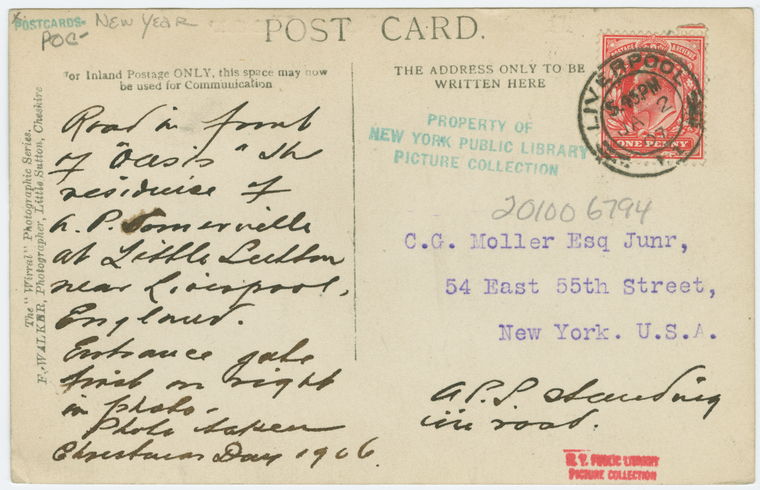 POSTCARDS- NEW YEAR
POC-
POST CARD.
For Inland Postage ONLY, this space may now
be used for Communication
THE ADDRESS ONLY TO BE
WRITTEN HERE
The "Wirral" Photographic Series.
F. WALKER, Photographer, Little Sutton, Cheshire
Road in front
of "Oasis" the
residence of
A. P. Somerville
at Little Sutton
near Liverpool,
England.
Entrance gate
first on right
in photo.
Photo taken
Christmas Day 1906.
LIVERPOOL
PM
JA 2
07
POSTAGE & REVENUE
ONE PENNY
PROPERTY OF
NEW YORK PUBLIC LIBRARY
PICTURE COLLECTION
201006794
C.G. Moller Esq Junr,
54 East 55th Street,
New York. U.S.A.
A P.S standing
in road.
N. Y. PUBLIC LIBRARY
PICTURE COLLECTION